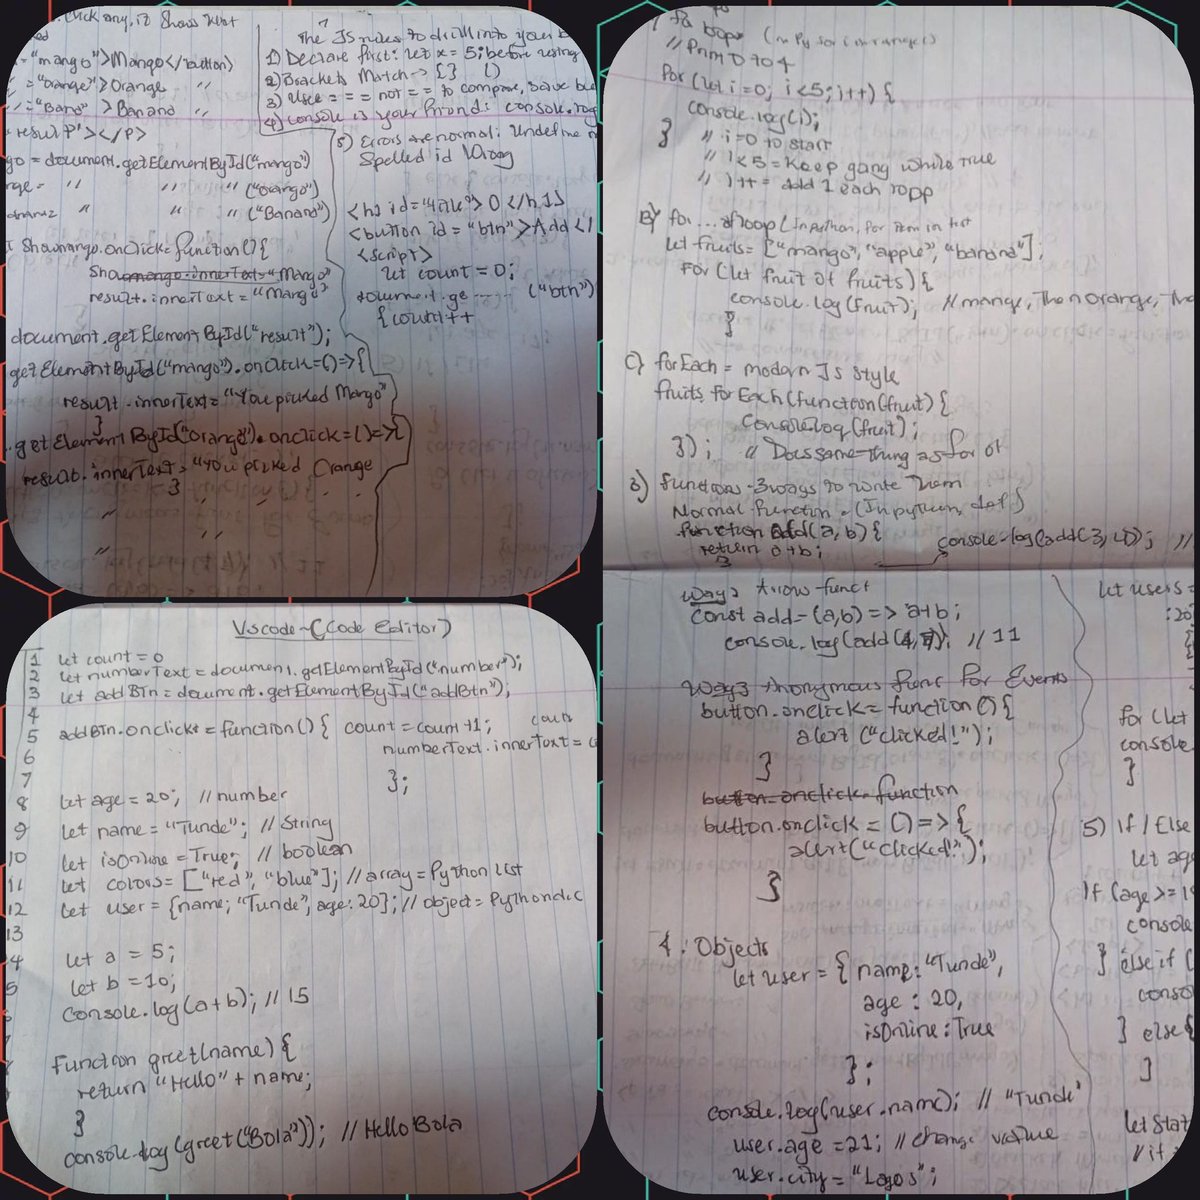 Click any, it shows
="mango">Mango</button>
="orange">Orange "
="Banana">Banana "
result"></p>
= document.getElementById("mango")
= " " " ("orange")
" " " ("Banana")
Showmango.onclick = function(){
result.innerText = "Mango"
document.getElementById("result");
getElementById("mango").onclick=()=>{
result.innerText = "You picked Mango"
}
.getElementById("orange").onclick=()=>{
result.innerText = "You picked Orange
}
The JS rules to drill into your
1) Declare first: let x = 5; before using
2) Brackets Match -> {} ()
3) Use === not == to compare,
4) console is your friend: console.log
5) Errors are normal: Undefine
Spelled id wrong
0 </h1>
<button id = "btn">Add </
<script>
let count = 0;
document.ge ---- ("btn")
{count++
Vscode - (Code Editor)
1 let count = 0
2 let numberText = document.getElementById("number");
3 let addBTn = document.getElementById("addBtn");
4
5 addBtn.onclick = function() { count = count+1;
6 numberText.innerText =
7 };
8 let age = 20; // number
9 let name = "Tunde"; // String
10 let isOnline = True; // boolean
11 let colors = ["red", "blue"]; // array = Python list
12 let user = {name; "Tunde", age: 20}; // object = Python dic
13
4 let a = 5;
5 let b = 10;
console.log(a+b); // 15
Function greet(name) {
return "Hello" + name;
}
console.log(greet("Bola")); // Hello Bola
loops (in Py for i in range)
// Print 0 to 4
For (let i=0; i<5; i++) {
console.log(i);
} // i=0 to start
// i<5 = Keep gang while true
// i++ = add 1 each
B) for...of loop (In python, for item in
let fruits = ["mango", "apple", "banana"];
For (let fruit of fruits) {
console.log(fruit); // mango, Then orange,
}
C) forEach = modern Js Style
fruits.forEach(function(fruit) {
console.log(fruit);
}); // Does same-thing as for of
3) functions - 3 ways to write them
Normal function - (In python, def)
function add(a, b) {
return a+b;
}
console.log(add(3, 4)); //
Way2 Arrow-funct
const add = (a,b) => a+b;
console.log(add(4, 7)); // 11
Way3 Anonymous func For Events
button.onclick = function () {
alert ("clicked!");
}
button.onclick = function
button.onclick = () => {
alert("clicked!");
}
4. Objects
let user = { name: "Tunde",
age : 20,
isOnline : True
};
console.log(user.name); // "Tunde"
user.age = 21; // change value
user.city = "Lagos";
let users =
:20
{
for (let
console.
}
5) If / Else
let age
If (age >= 1
console
} else if (
conso
} else {
}
let Stat
if